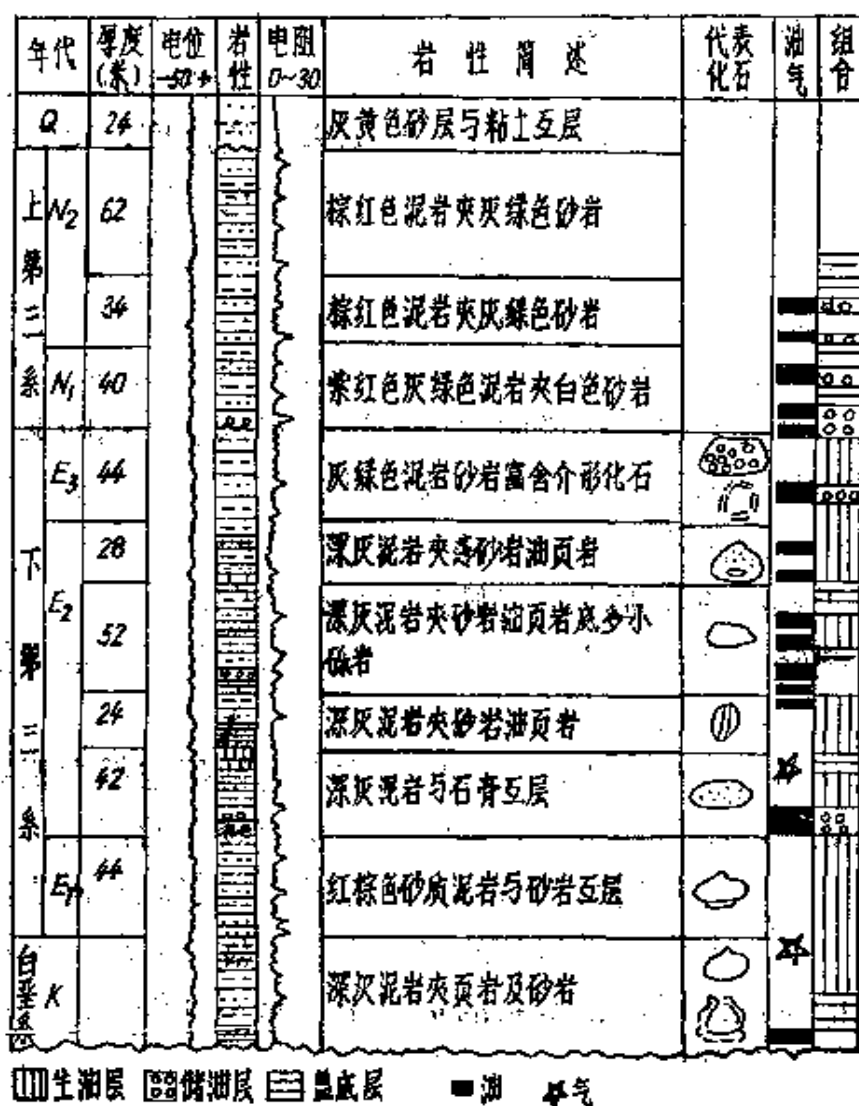 年代 厚度(米) 电位 -50+ 岩性 电阻 0~30 岩性简述 代表化石 油气 组合
Q 24 灰黄色砂层与粘土互层
上第三系 N₂ 62 棕红色泥岩夹灰绿色砂岩
34 棕红色泥岩夹灰绿色砂岩
N₁ 40 紫红色灰绿色泥岩夹白色砂岩
下第三系 E₃ 44 灰绿色泥岩砂岩富含介形化石
E₂ 28 深灰泥岩夹薄砂岩油页岩
52 深灰泥岩夹砂岩油页岩底多小
砾岩
24 深灰泥岩夹砂岩油页岩
42 深灰泥岩与石膏互层
E₁ 44 红棕色砂质泥岩与砂岩互层
白垩系 K 深灰泥岩夹页岩及砂岩
生油层 储油层 盖底层 油 气